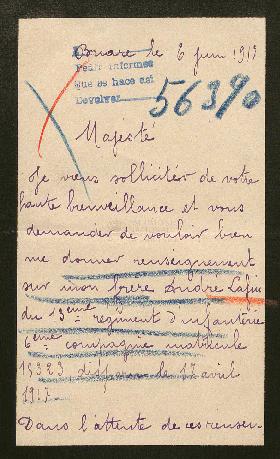 Briare le 6 juin 1917
Pedir informes
que se hace así
Devolver
56390
Majesté
Je viens solliciter de votre
haute bienveillance et vous
demander de vouloir bien
me donner renseignement
sur mon frère André
du 13eme régiment d'infanterie
6eme compagnie matricule
disparu le 17 avril
1917.
Dans l'attente de ces rensei-